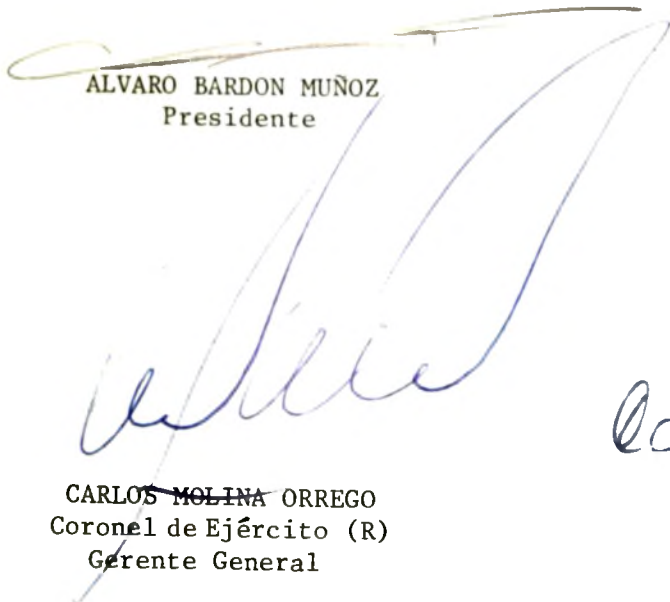 ALVARO BARDON MUÑOZ
Presidente
CARLOS MOLINA ORREGO
Coronel de Ejército (R)
Gerente General